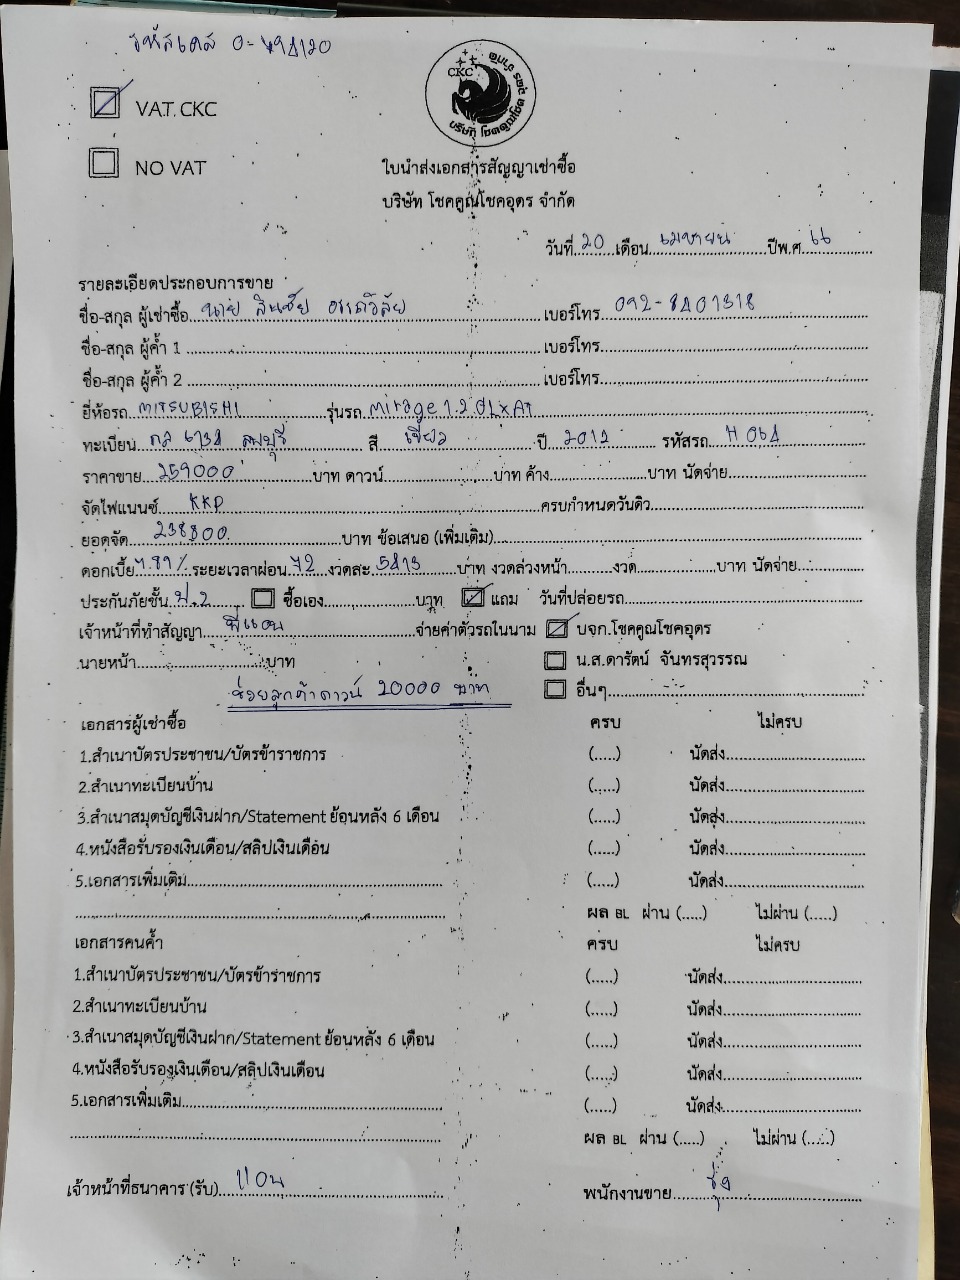 รหัสเคส
VAT. CKC
CKC
NO VAT
ใบนำส่งเอกสารสัญญาเช่าซื้อ
บริษัท โชคคูณโชคอุดร จำกัด
วันที่ 20 เดือน เมษายน ปีพ.ศ. 66
รายละเอียดประกอบการขาย
ชื่อ-สกุล ผู้เช่าซื้อ นาย สินชัย เบอร์โทร
ชื่อ-สกุล ผู้ค้ำ 1 เบอร์โทร
ชื่อ-สกุล ผู้ค้ำ 2 เบอร์โทร
ยี่ห้อรถ MITSUBISHI รุ่นรถ Mirage 1.2 GLX AT
ทะเบียน ลพบุรี สี เขียว ปี 2012 รหัสรถ
ราคาขาย 259000 บาท ดาวน์ บาท ค้าง บาท นัดจ่าย
จัดไฟแนนซ์ KKP ครบกำหนดวันดิว
ยอดจัด 238800 บาท ข้อเสนอ (เพิ่มเติม)
ดอกเบี้ย ระยะเวลาผ่อน 72 งวดละ บาท งวดล่วงหน้า งวด บาท นัดจ่าย
ประกันภัยชั้น ป.2 ซื้อเอง บาท แถม วันที่ปล่อยรถ
เจ้าหน้าที่ทำสัญญา พี่แอน จ่ายค่าตัวรถในนาม บจก.โชคคูณโชคอุดร
นายหน้า บาท น.ส.ดารัตน์ จันทรสุวรรณ
ช่วยลูกค้าดาวน์ 20000 บาท อื่นๆ
เอกสารผู้เช่าซื้อ ครบ ไม่ครบ
1.สำเนาบัตรประชาชน/บัตรข้าราชการ (.....) นัดส่ง
2.สำเนาทะเบียนบ้าน (.....) นัดส่ง
3.สำเนาสมุดบัญชีเงินฝาก/Statement ย้อนหลัง 6 เดือน (.....) นัดส่ง
4.หนังสือรับรองเงินเดือน/สลิปเงินเดือน (.....) นัดส่ง
5.เอกสารเพิ่มเติม (.....) นัดส่ง
ผล BL ผ่าน (.....) ไม่ผ่าน (.....)
เอกสารคนค้ำ ครบ ไม่ครบ
1.สำเนาบัตรประชาชน/บัตรข้าราชการ (.....) นัดส่ง
2.สำเนาทะเบียนบ้าน (.....) นัดส่ง
3.สำเนาสมุดบัญชีเงินฝาก/Statement ย้อนหลัง 6 เดือน (.....) นัดส่ง
4.หนังสือรับรองเงินเดือน/สลิปเงินเดือน (.....) นัดส่ง
5.เอกสารเพิ่มเติม (.....) นัดส่ง
ผล BL ผ่าน (.....) ไม่ผ่าน (.....)
เจ้าหน้าที่ธนาคาร (รับ) แอน พนักงานขาย